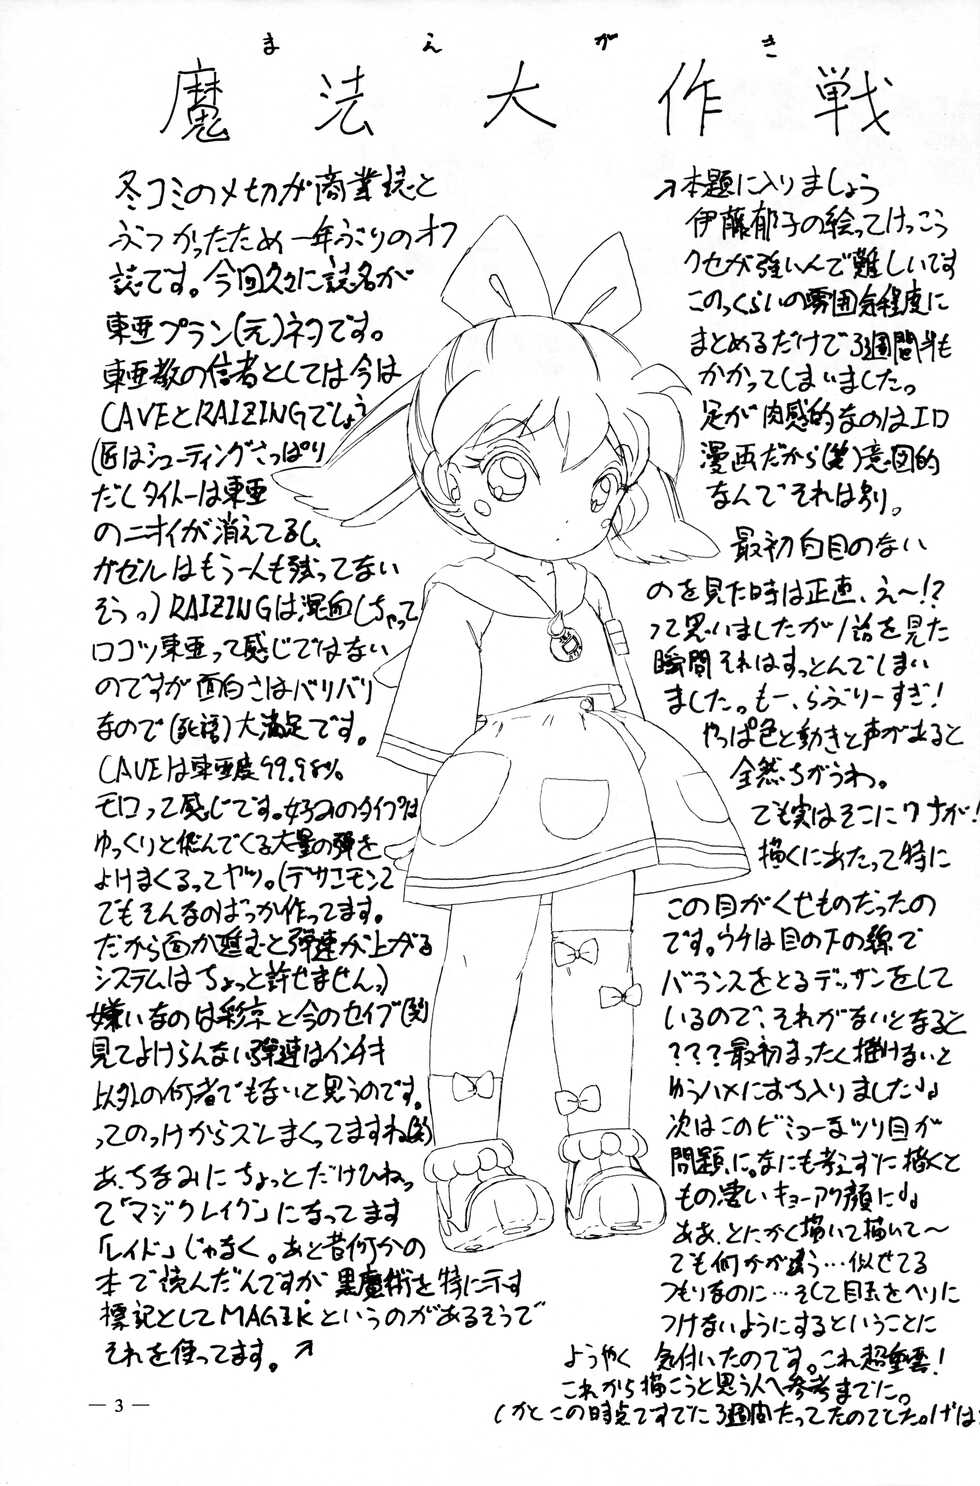 まえがき
魔法大作戦
冬コミの〆切が商業誌と
ぶつかったため一年ぶりのオフ
誌です。今回久々に誌名が
東亜プラン(元)ネタです。
東亜教の信者としては今は
CAVEとRAIZINGでしょう
(匠はシューティングさっぱり
だしタイトーは東亜
のニオイが消えてるし、
ガゼルはもう一人も残ってない
そうっ。) RAIZINGは混血しちゃって
ロコツ東亜って感じではない
のですが面白さはバリバリ
なので(死語)大満足です。
CAVEは東亜度99.9%。
モロって感じです。好みのタイプは
ゆっくりと飛んでくる大量の弾を
よけまくるってヤツ。(デザエモン2
でもそんなのばっか作ってます。
だから面が進むと弾速が上がる
システムはちょっと許せません。)
嫌いなのは彩京と今のセイブ(関)
見てよけらんない弾速はインチキ
以外の何者でもないと思うのです。
ってのっけからズレまくってますね(笑)
あ、ちなみにちょっとだけひねっ
て「マジクレイク」になってます
「レイド」じゃなく。あと昔何かの
本で読んだんですが黒魔術を特に示す
標記としてMAGIKというのがあるそうで
それを使ってます。↗
↗本題に入りましょう
伊藤郁子の絵ってけっこう
クセが強いんで難しいです
このっくらいの雰囲気程度に
まとめるだけで3週間半も
かかってしまいました。
足が肉感的なのはエロ
漫画だから(笑)意図的
なんでそれは別。
最初白目のない
のを見た時は正直、え〜!?
って思いましたが1話を見た
瞬間それはすっとんでしまい
ました。もー、らぶりーすぎ!
やっぱ色と動きと声があると
全然ちがうわ。
でも実はそこにワナが!
描くにあたって特に
この目がくせものだったの
です。ウチは目の下の線で
バランスをとるデッサンをして
いるので、それがないとなると
???最初まったく描けないと
ゆうハメにおち入りました♩♩
次はこのビミョーなツリ目が
問題に。なにも考えずに描くと
もの凄いキョーアク顔に♩♩
ああ、とにかく描いて描いて〜
でも何かが違う…似せてる
つもりなのに…そして目玉をヘリに
つけないようにするということに
ようやく気付いたのです。これ超重要!
これから描こうと思う人へ参考までに。
(かとこの時点ですでに3週間たってたのでした。げは
— 3 —